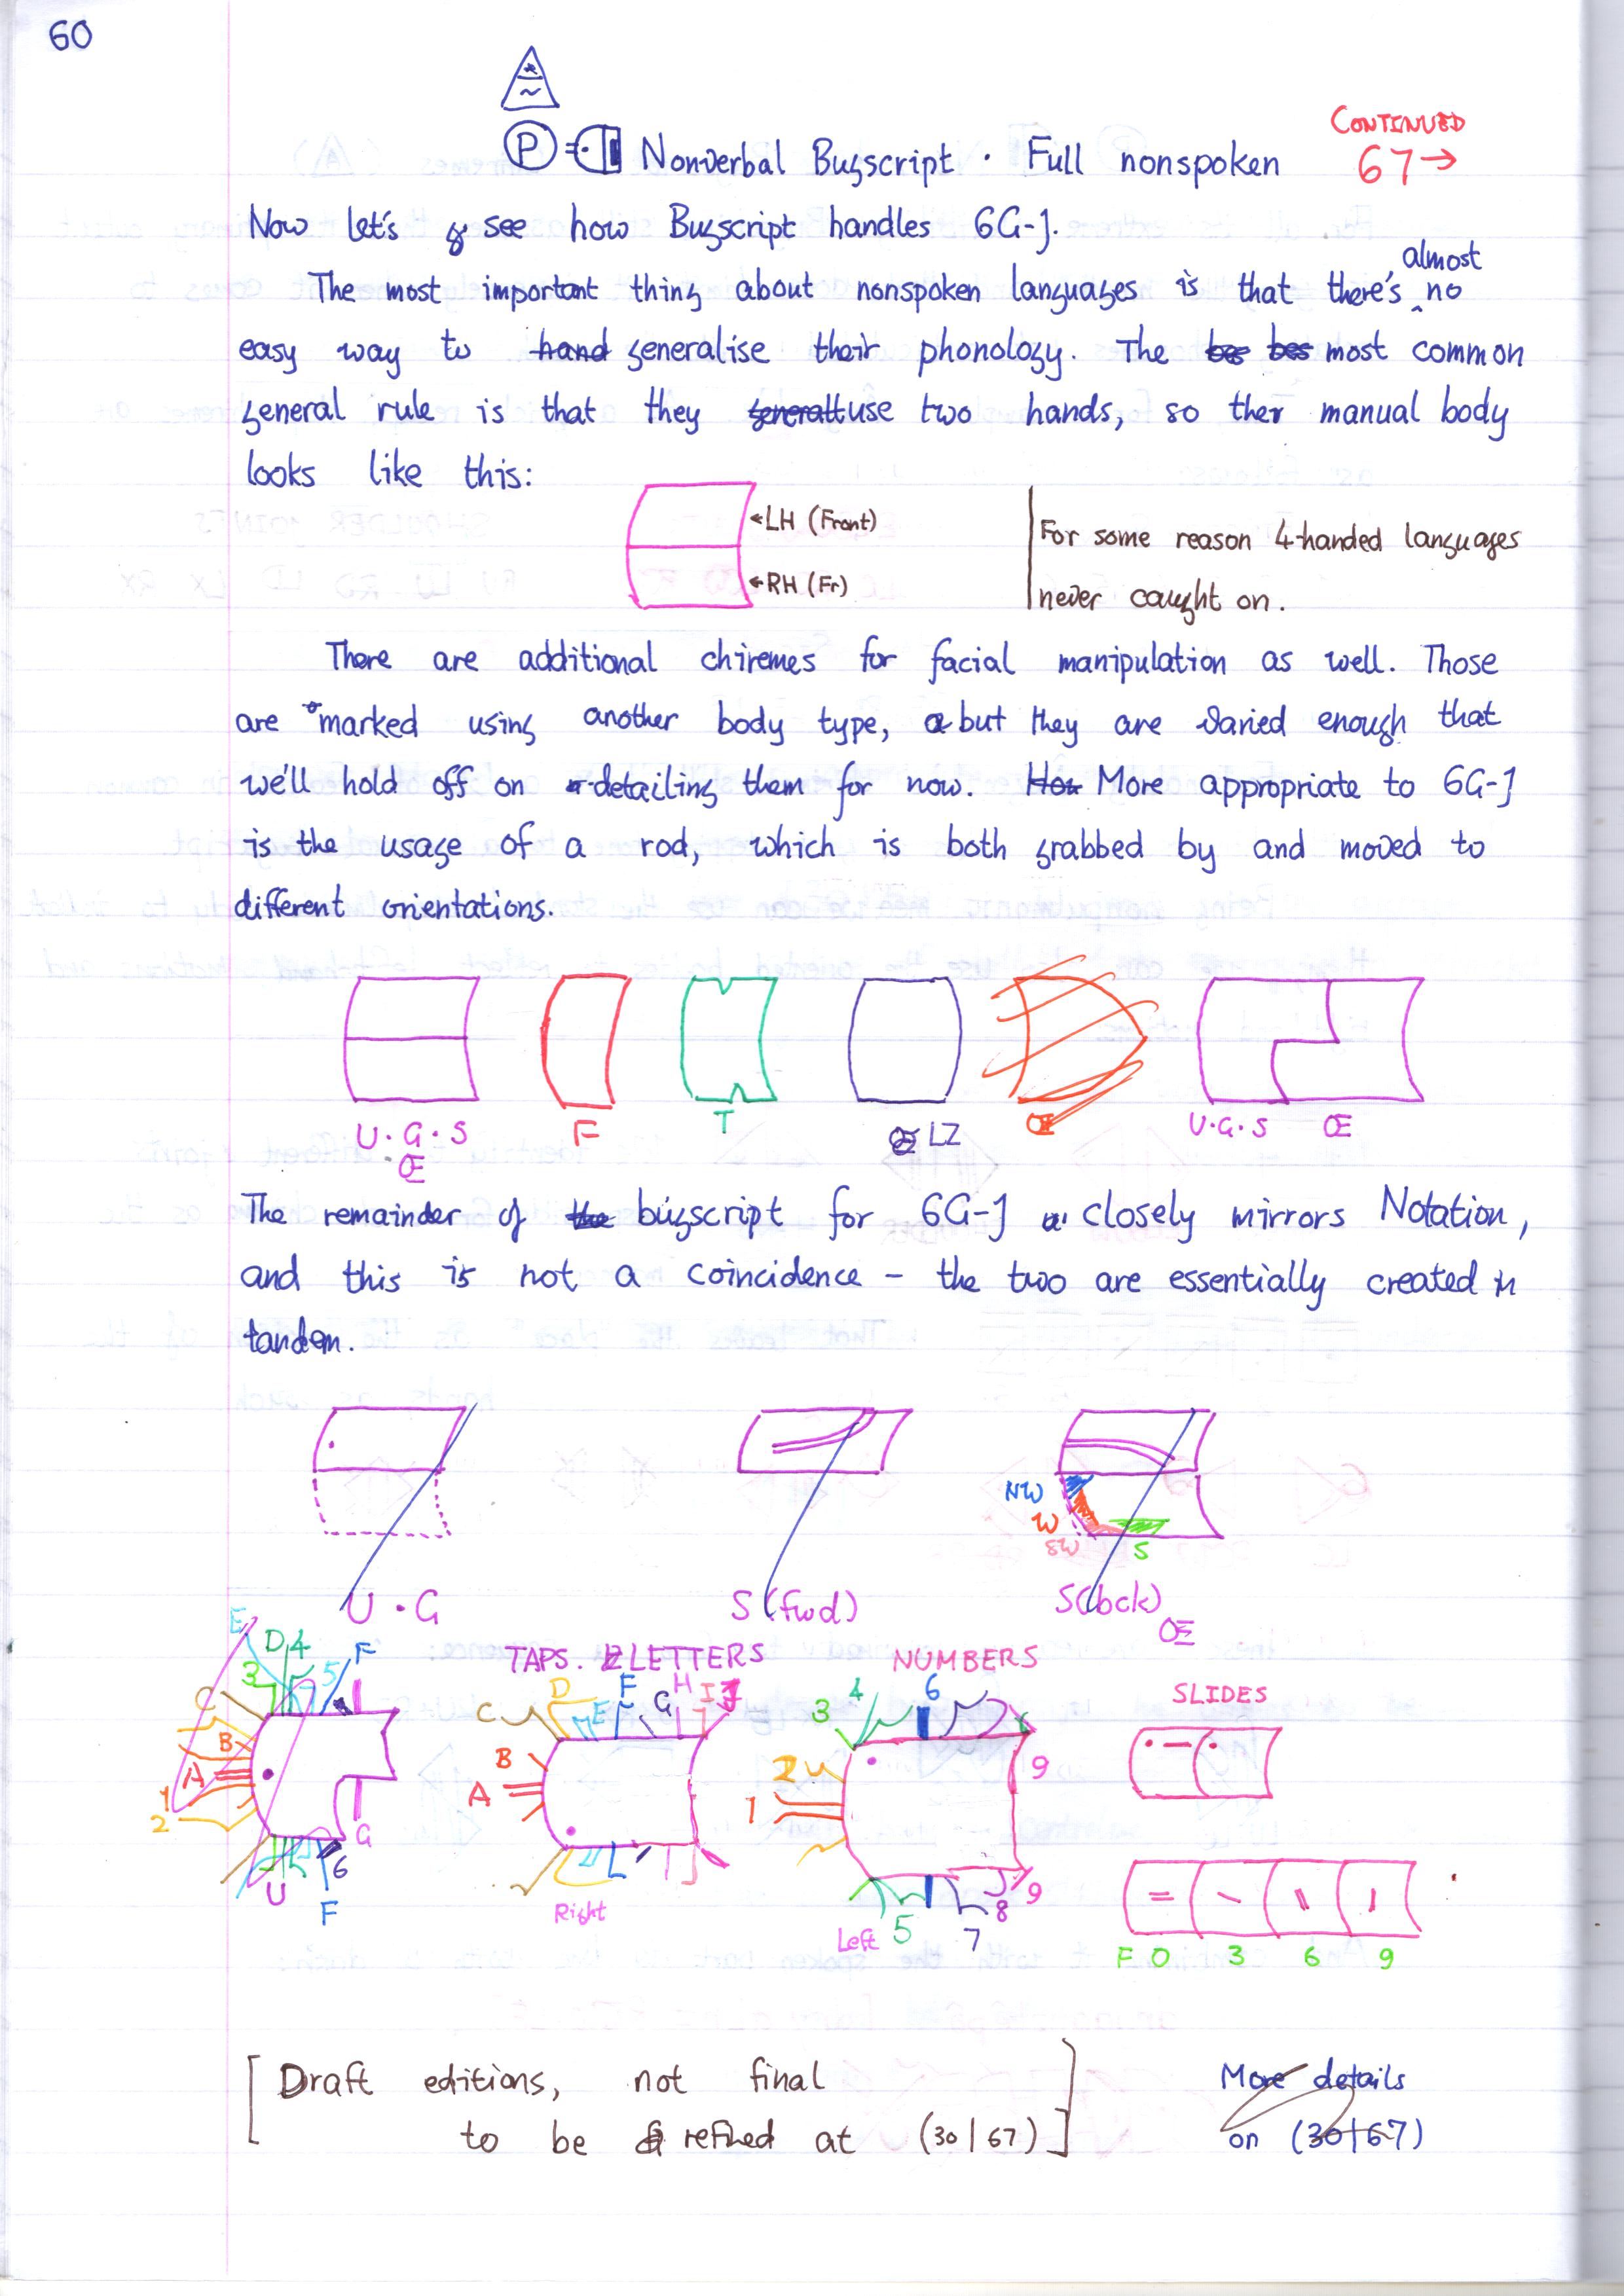 60
P Nonverbal Bugscript · Full nonspoken
CONTINUED
67→
Now let's see how Bugscript handles 6G-J.
The most important thing about nonspoken languages is that there's almost no
easy way to hand generalise their phonology. The bes bes most common
general rule is that they generall use two hands, so ther manual body
looks like this:
←LH (Front)
←RH (Fr)
For some reason 4-handed languages
never caught on.
There are additional chiremes for facial manipulation as well. Those
are marked using another body type, but they are varied enough that
we'll hold off on detailing them for now. How More appropriate to 6G-J
is the usage of a rod, which is both grabbed by and moved to
different orientations.
U·G·S
Œ
F
T
LZ
Œ
U·G·S Œ
The remainder of the bugscript for 6G-J closely mirrors Notation,
and this is not a coincidence – the two are essentially created in
tandem.
NW
W
SW
S
U·G
S (fwd)
S(bck)
Œ
E
D 4
F
3
5
C
B
A
1
2
G
6
U
F
TAPS. LETTERS
C D E F G H I J
B
A
Right
NUMBERS
3 4 6
2
9
1
9
8
5
7
Left
SLIDES
F 0 3 6 9
[Draft editions, not final
to be refined at (30|67)]
More details
on (30|67)